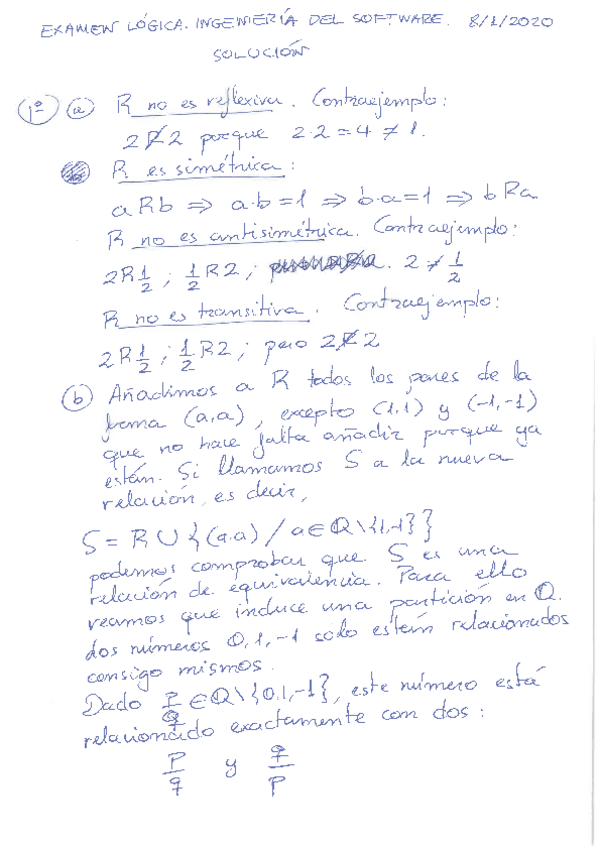 EXAMEN LÓGICA. INGENIERÍA DEL SOFTWARE. 8/1/2020
SOLUCIÓN
1º a R no es reflexiva. Contraejemplo:
2R̸2 porque 2·2=4≠1.
R es simétrica:
aRb ⇒ a·b=1 ⇒ b·a=1 ⇒ bRa
R no es antisimétrica. Contraejemplo:
2R1/2; 1/2R2; 2≠1/2
R no es transitiva. Contraejemplo:
2R1/2; 1/2R2; pero 2R̸2
b Añadimos a R todos los pares de la
forma (a,a), excepto (1,1) y (-1,-1)
que no hace falta añadir porque ya
están. Si llamamos S a la nueva
relación, es decir,
S = R ∪ {(a,a) / a∈Q\{1,-1}}
podemos comprobar que S es una
relación de equivalencia. Para ello
veamos que induce una partición en Q.
dos números 0,1,-1 solo están relacionados
consigo mismos.
Dado p/q ∈Q\{0,1,-1}, este número está
relacionado exactamente con dos:
p/q y q/p